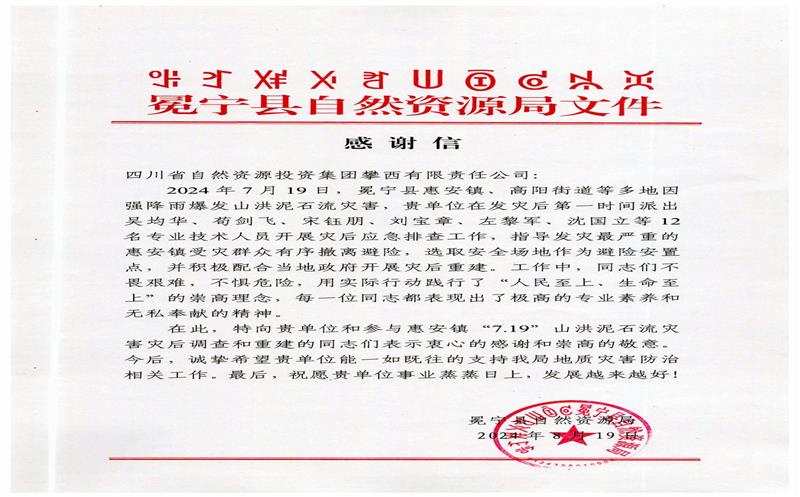 冕宁县自然资源局文件
感谢信
四川省自然资源投资集团攀西有限责任公司：
2024年7月19日，冕宁县惠安镇、高阳街道等多地因
强降雨爆发山洪泥石流灾害，贵单位在发灾后第一时间派出
吴均华、苟剑飞、宋钰朋、刘宝章、左黎军、沈国立等12
名专业技术人员开展灾后应急排查工作，指导发灾最严重的
惠安镇受灾群众有序撤离避险，选取安全场地作为避险安置
点，并积极配合当地政府开展灾后重建。工作中，同志们不
畏艰难，不惧危险，用实际行动践行了“人民至上、生命至
上”的崇高理念，每一位同志都表现出了极高的专业素养和
无私奉献的精神。
在此，特向贵单位和参与惠安镇“7.19”山洪泥石流灾
害灾后调查和重建的同志们表示衷心的感谢和崇高的敬意。
今后，诚挚希望贵单位能一如既往的支持我局地质灾害防治
相关工作。最后，祝愿贵单位事业蒸蒸日上，发展越来越好！
冕宁县自然资源局
2024年8月19日